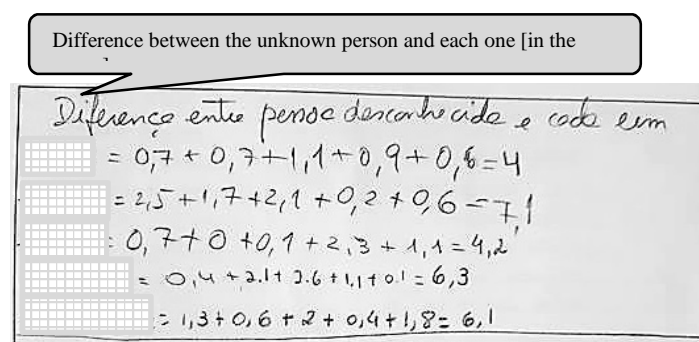 Difference between the unknown person and each one [in the
Diferença entre pessoa desconhecida e cada um
= 0,7 + 0,7 + 1,1 + 0,9 + 0,6 = 4
= 2,5 + 1,7 + 2,1 + 0,2 + 0,6 = 7,1
= 0,7 + 0 + 0,1 + 2,3 + 1,1 = 4,2
= 0,4 + 2.1 + 2.6 + 1,1 + 0.1 = 6,3
= 1,3 + 0,6 + 2 + 0,4 + 1,8 = 6,1